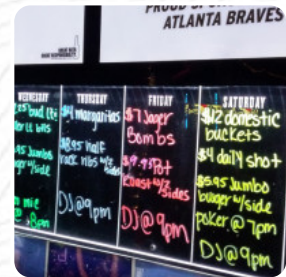 PROUD
ATLANTA BRAVES
WEDNESDAY
Jumbo
w/side
8pm
THURSDAY
$4 margaritas
$8.95 half
rack ribs w/2
sides
DJ@9pm
FRIDAY
$7 Jager
Bombs
$9.95 Pot
Roast w/2
sides
DJ@9pm
SATURDAY
$12 domestic
buckets
$4 daily shot
$5.95 Jumbo
burger w/side
poker@7pm
DJ@9pm